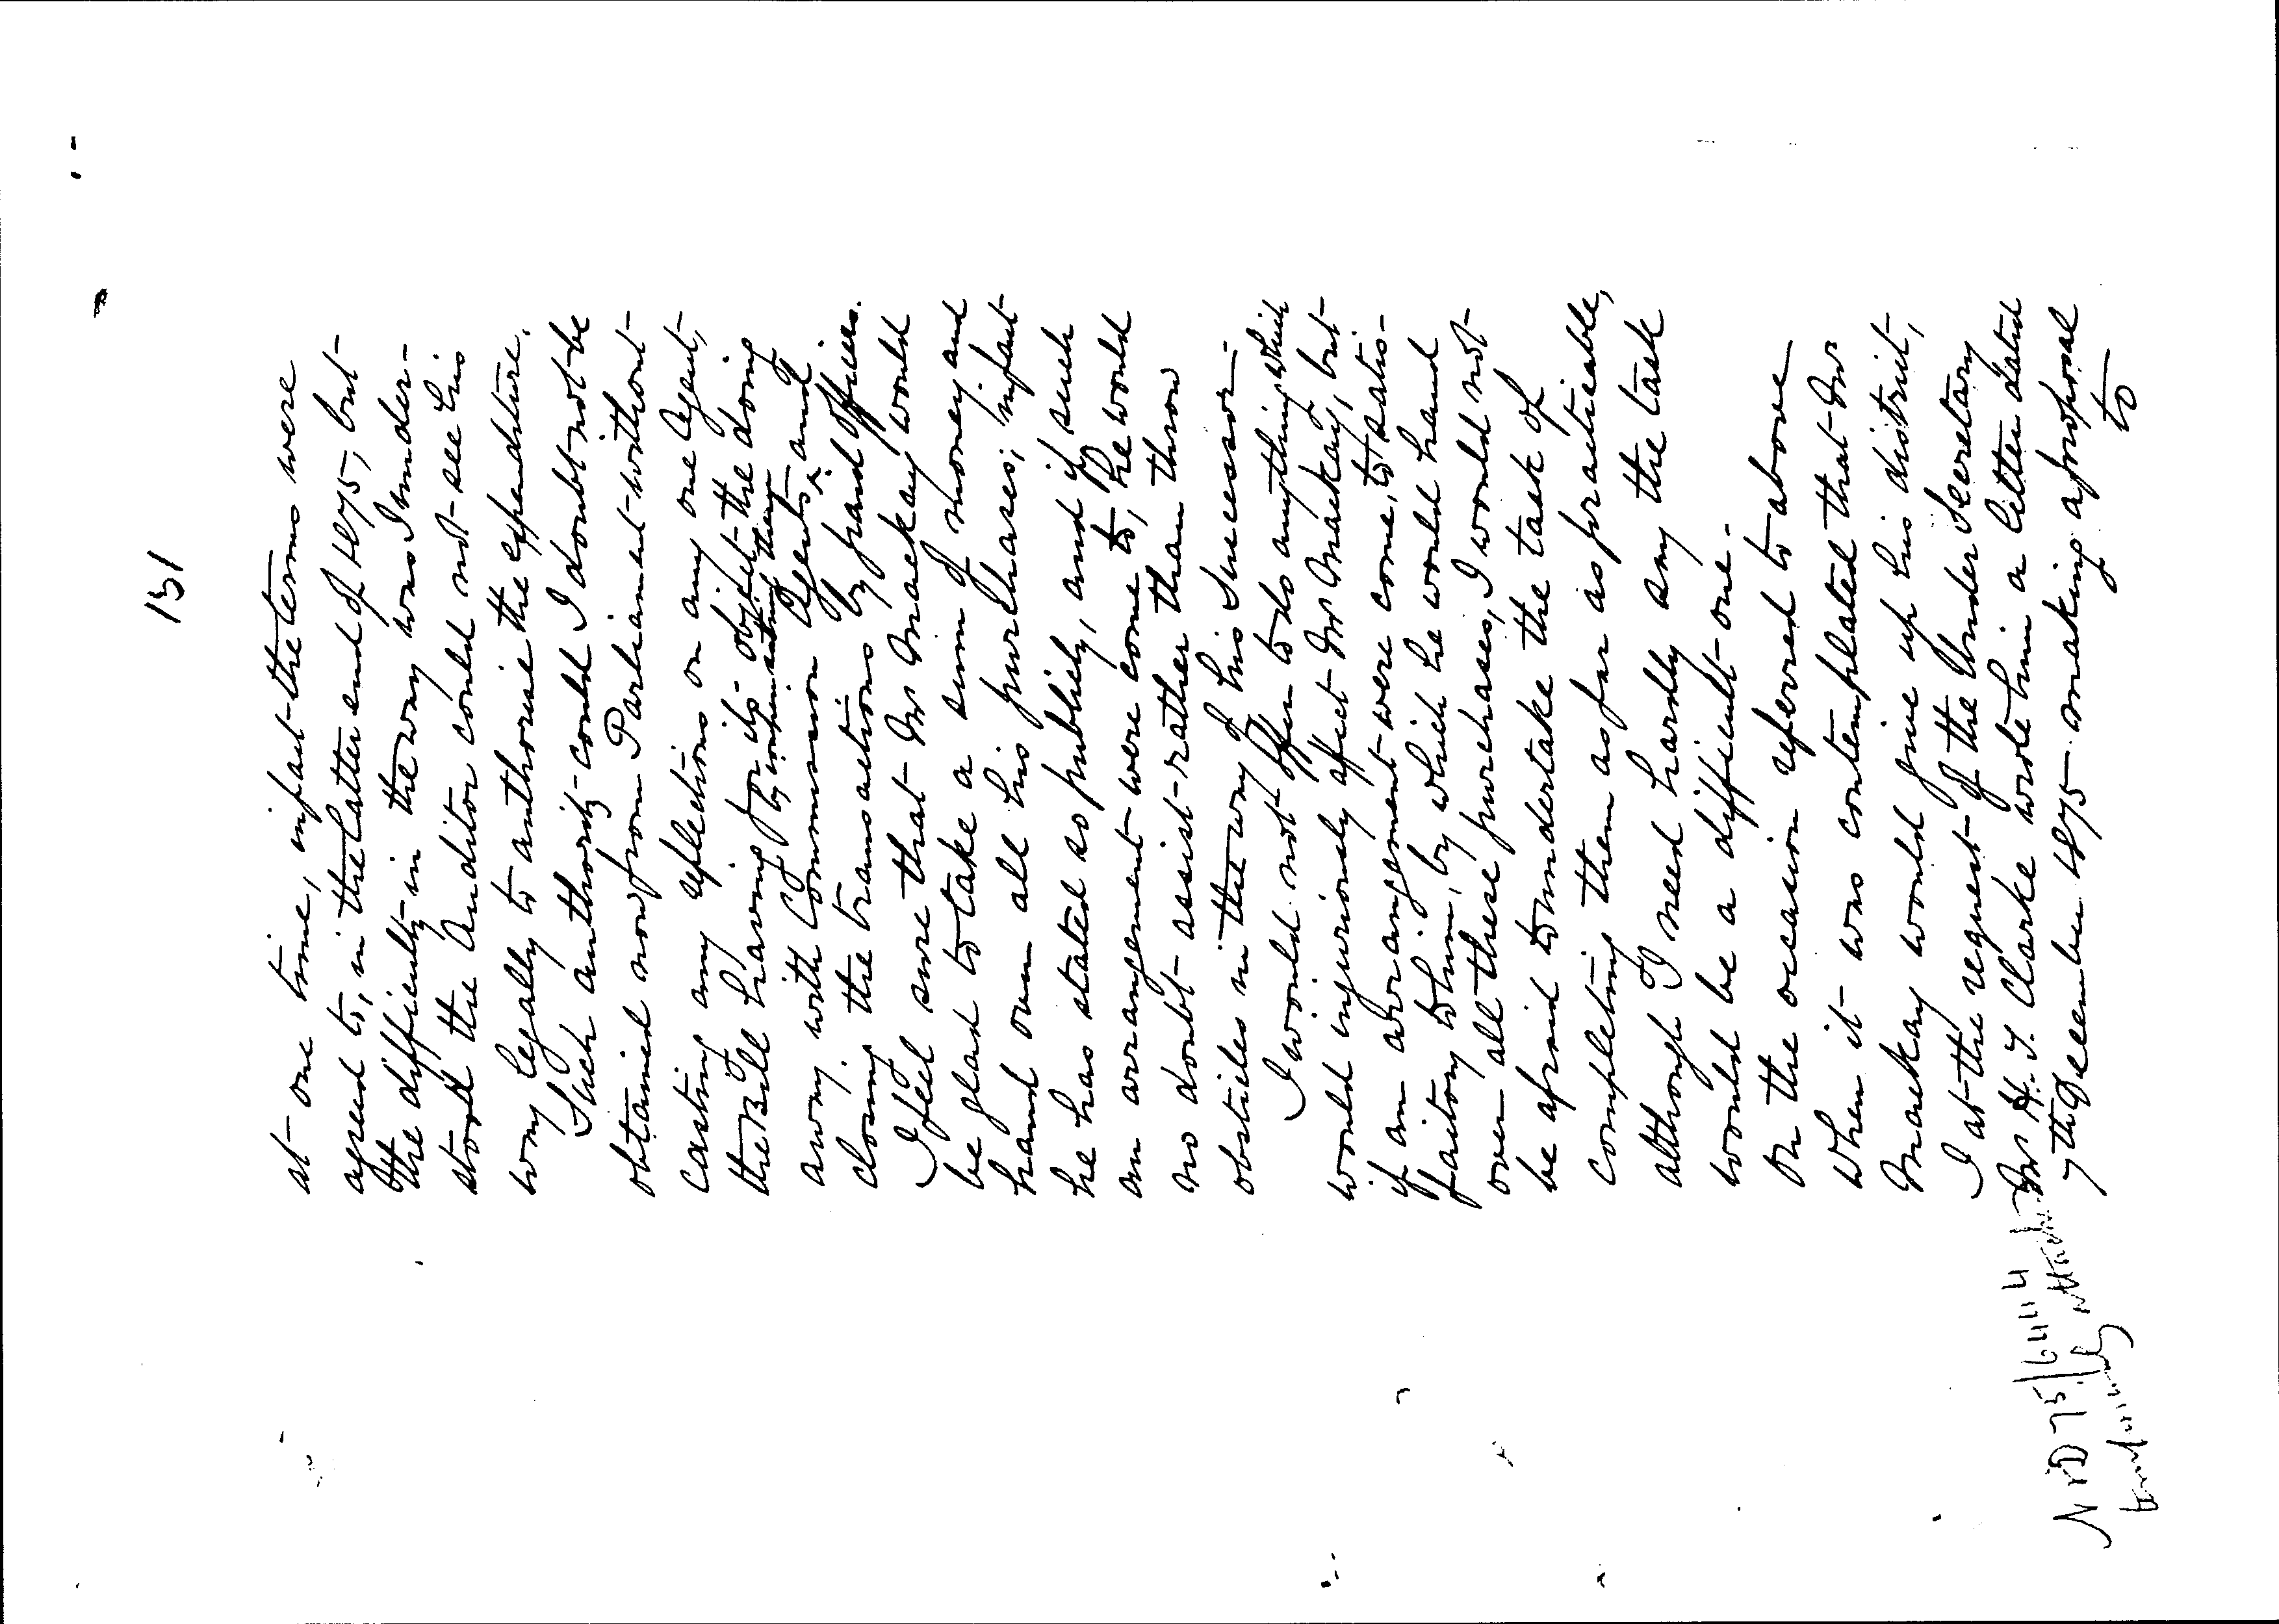 131
at one time, infact the terms were
agreed to, in the latter end of 1875, but
the difficulty in the way was I under-
stood the Auditor could not see his
way legally to authorise the expenditure.
Such authority could I doubt not be
obtained now from Parliament without
casting any reflections on any one Agent,
the Bill having for its object the doing
away with Commission Agents, and
by
closing the transactions by paid officers.
I feel sure that Mr Mackay would
be glad to take a sum of money and
hand over all his purchases; infact
he has stated so publicly, and if such
an arrangement were come to, he would
no doubt assist rather than throw
obstacles in the way of his Successor-
I would not offer to do anything which
would injuriously affect Mr Mackay, but
if an arrangement were come, to satis-
factory to him, by which he would hand
over all these purchases, I would not
be afraid to undertake the task of
completing them as far as practicable,
although I need hardly say the task
would be a difficult one-
On the occasion referred to above
when it was contemplated that Mr
Mackay would give up his district,
I at the request of the Under Secretary
Mr H. T. Clarke wrote him a letter dated
7th December 1875 making a proposal
to